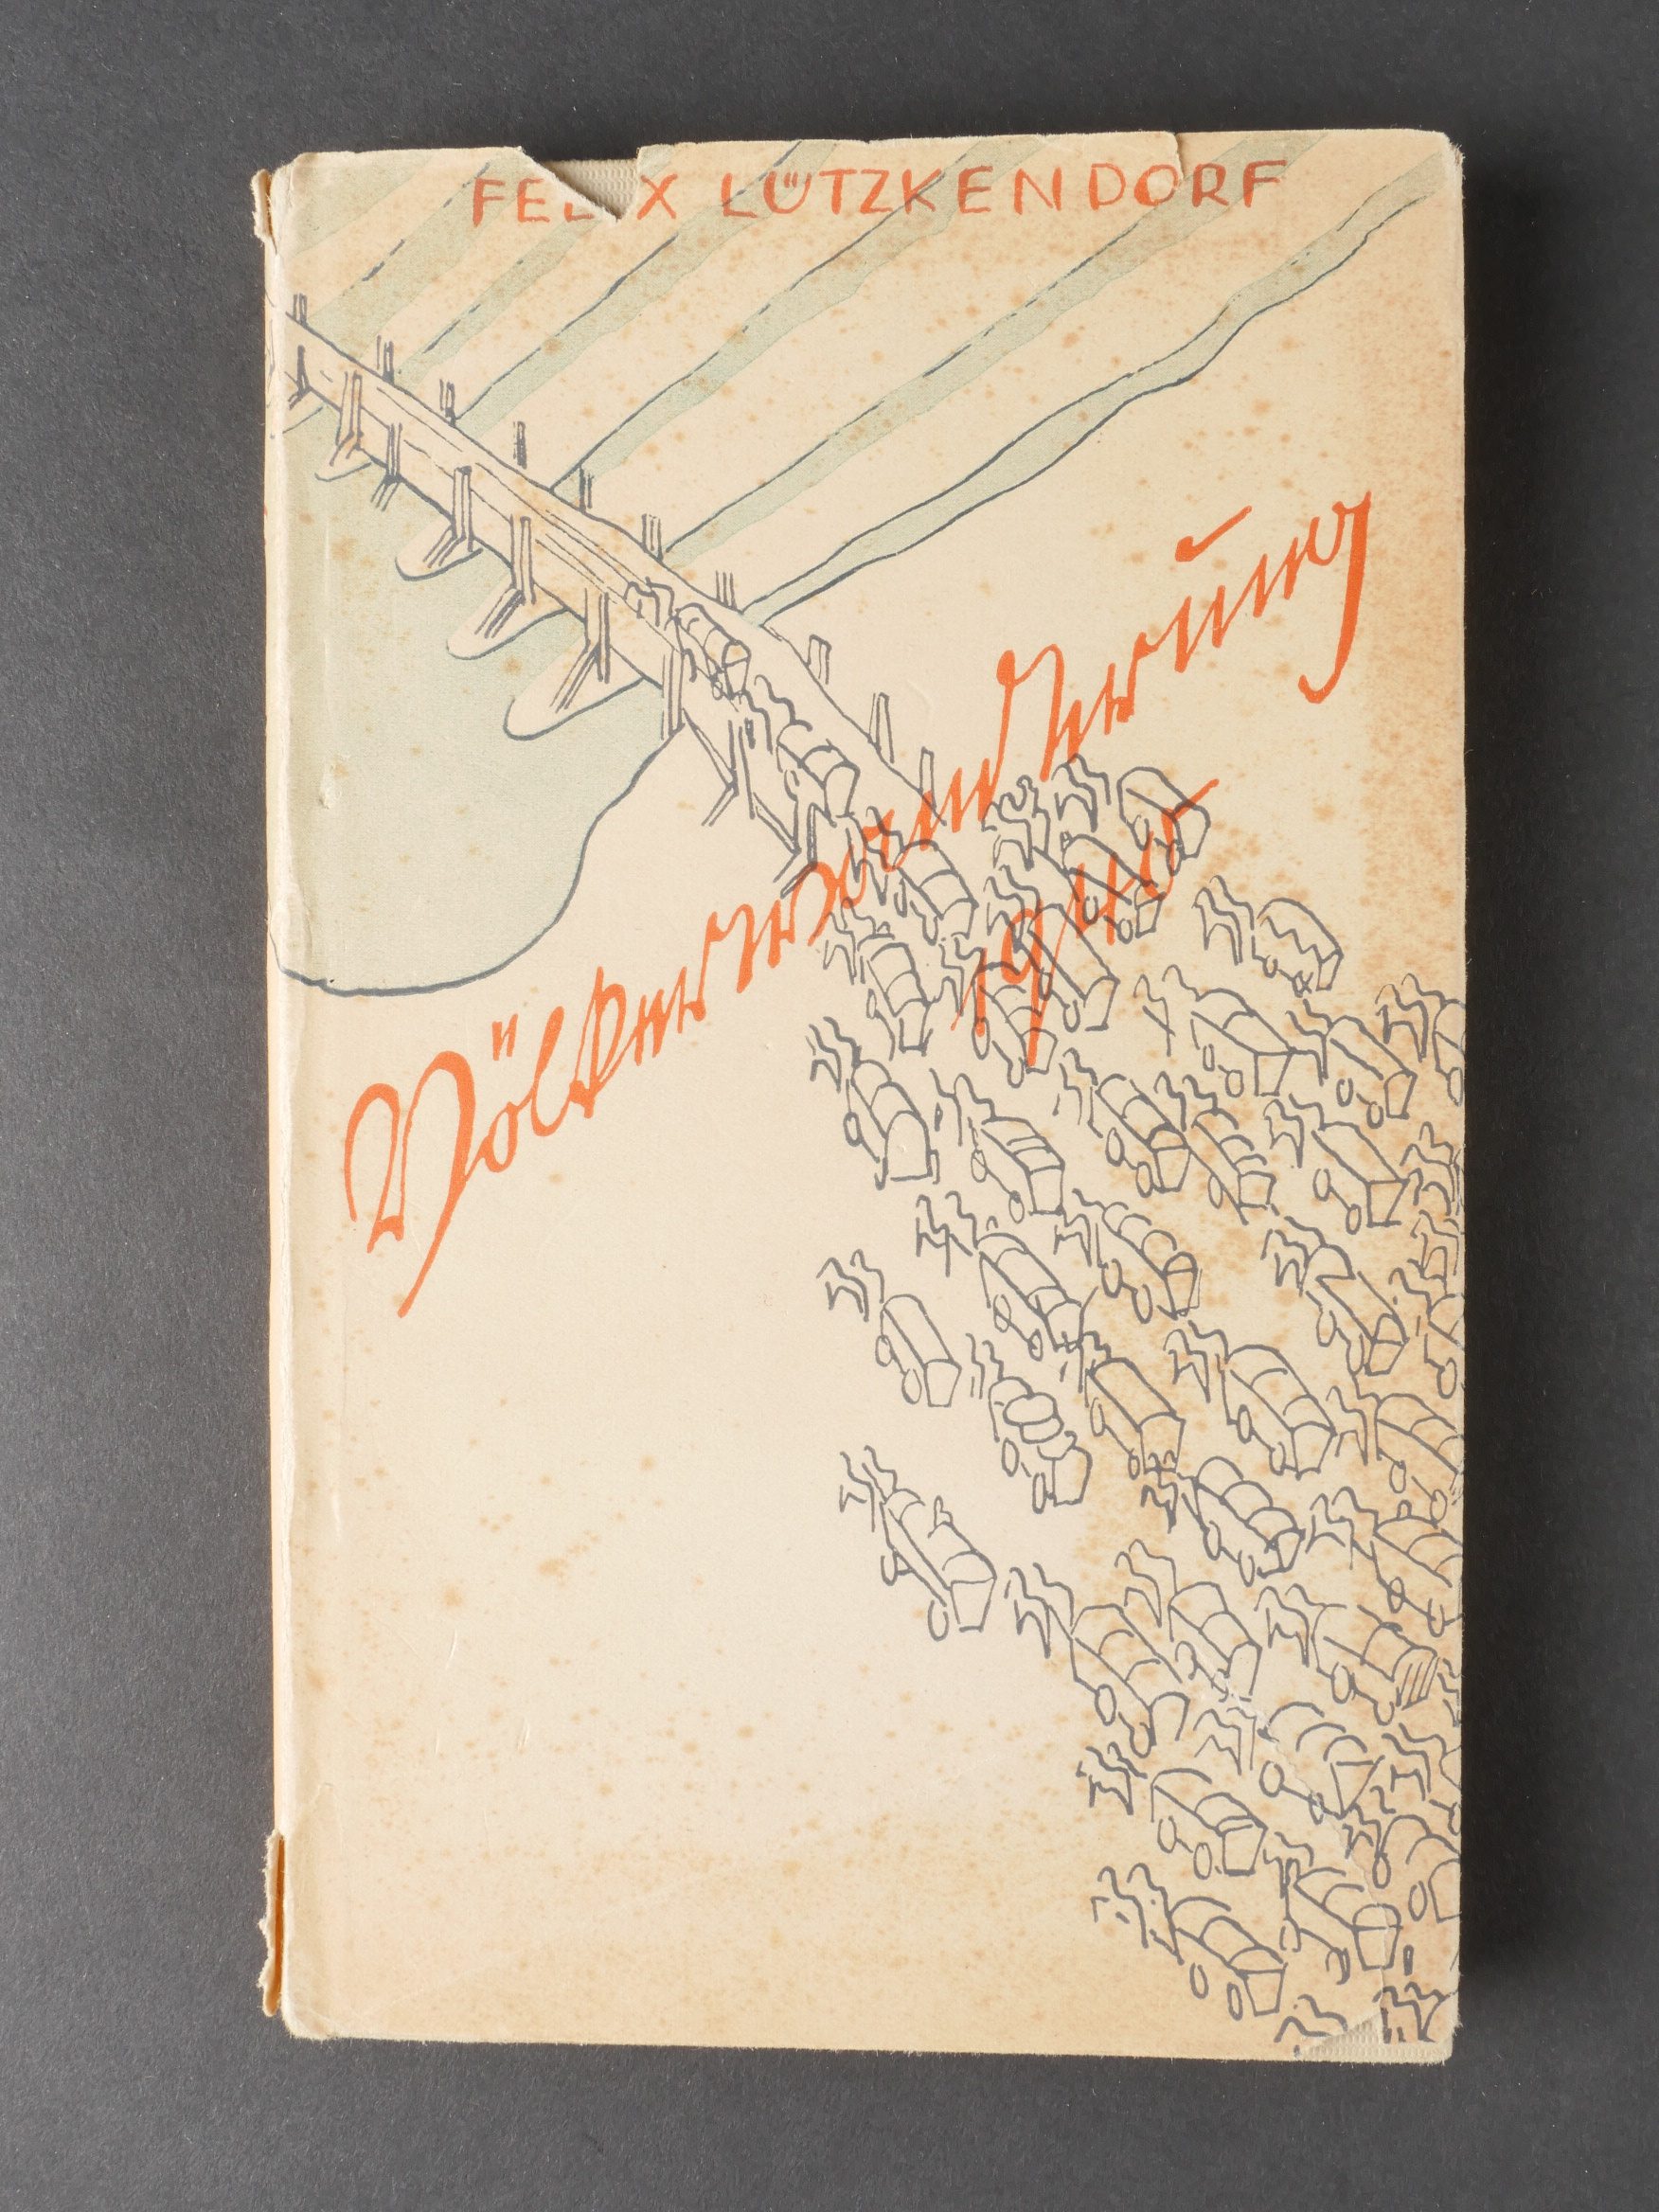 FELIX LÜTZKENDORF
Völkerwanderung
1940